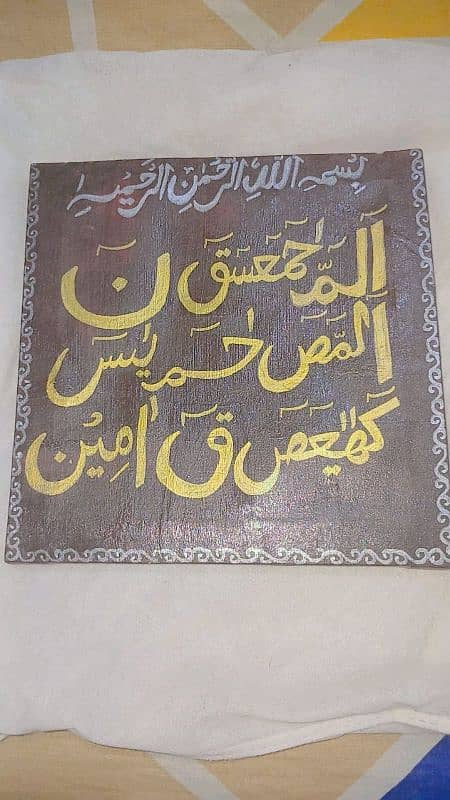 بِسْمِہِ اللّٰہِ الرَّحْمٰنِ الرَّحِیْمِہِ
الٓمّٓ احٓمٓعٓسٓقٓ نٓ
الٓمّٓصٓ حٰمٓ یٰسٓ
کٓھٰیٰعٓصٓ قٓ اٰمِیْن